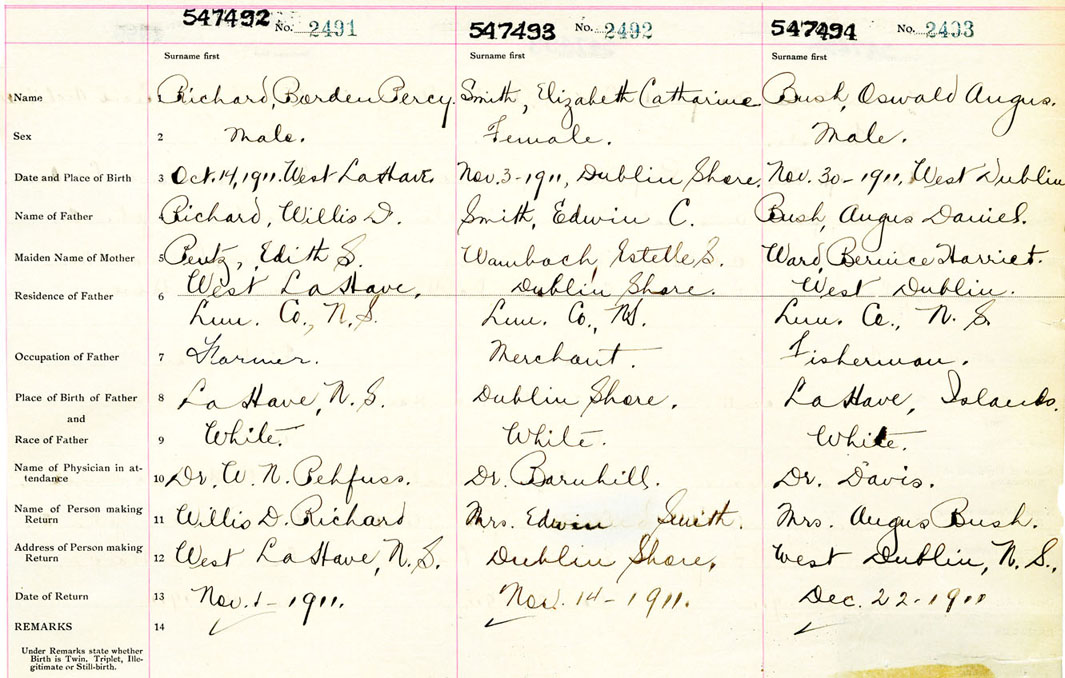 547492 No. 2491 547493 No. 2492 547494 No. 2493
Surname first Surname first Surname first
Name 1 Richard, Borden Percy. Smith, Elizabeth Catharine Bush, Oswald Angus.
Sex 2 Male. Female. Male.
Date and Place of Birth 3 Oct. 14, 1911. West LaHave. Nov. 3-1911, Dublin Shore. Nov. 30-1911, West Dublin
Name of Father Richard, Willis D. Smith, Edwin C. Bush, Angus Daniel.
Maiden Name of Mother 5 Pentz, Edith S. Wambach, Estelle S. Ward, Bernice Harriet.
Residence of Father 6 West LaHave, Dublin Shore. West Dublin.
Lun. Co., N.S. Lun. Co., NS. Lun. Co., N. S.
Occupation of Father 7 Farmer. Merchant. Fisherman.
Place of Birth of Father 8 LaHave, N.S. Dublin Shore. LaHave, Islands.
and
Race of Father 9 White. White. White.
Name of Physician in at-
tendance 10 Dr. W. N. Rehfuss. Dr. Barnhill. Dr. Davis.
Name of Person making
Return 11 Willis D. Richard Mrs. Edwin Smith. Mrs. Angus Bush.
Address of Person making
Return 12 West LaHave, N.S. Dublin Shore. West Dublin, N.S.,
Date of Return 13 Nov. 1-1911. Nov. 14-1911. Dec. 22-1911
REMARKS 14
Under Remarks state whether
Birth is Twin, Triplet, Ille-
gitimate or Still-birth.